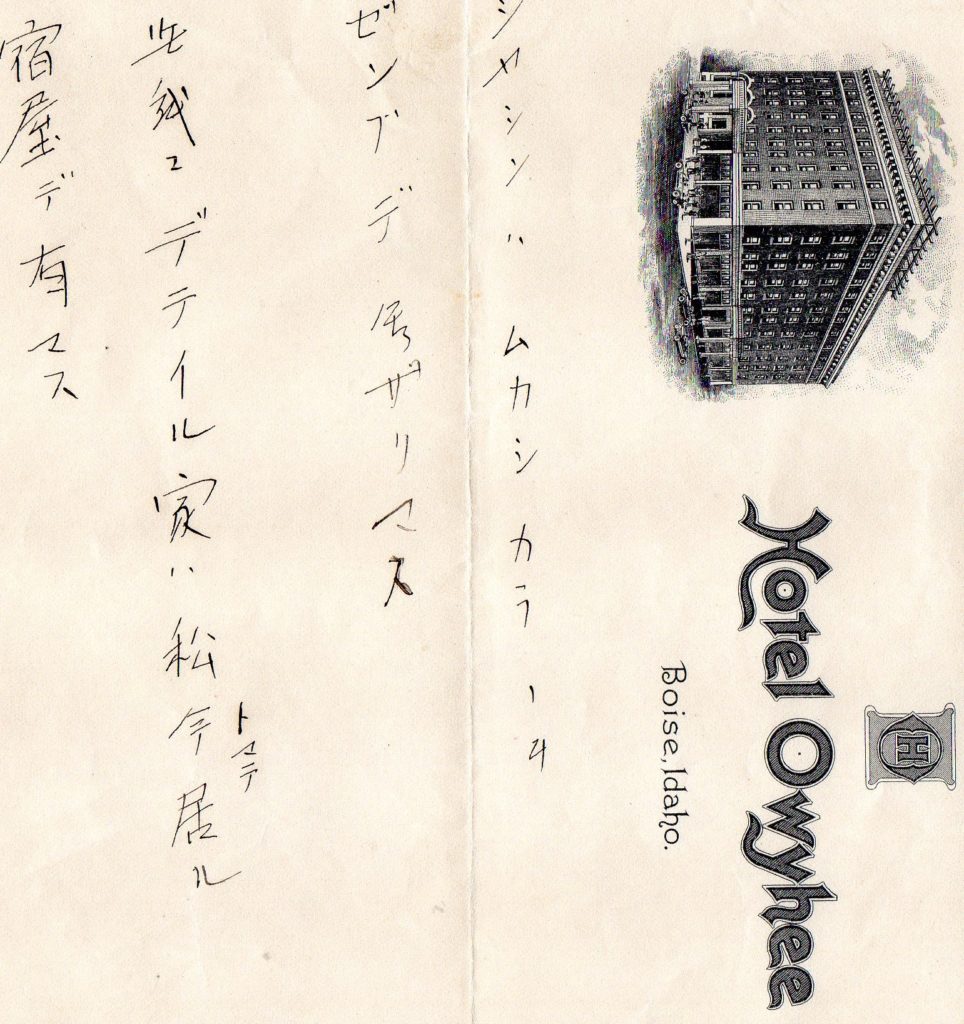 Hotel Owyhee
Boise, Idaho.
シヤシンハ ムカシ カラ
ゼンブデ 居ザリマス
此紙ニ デテイル家ハ私今居ル
トマテ
宿屋デ有マス